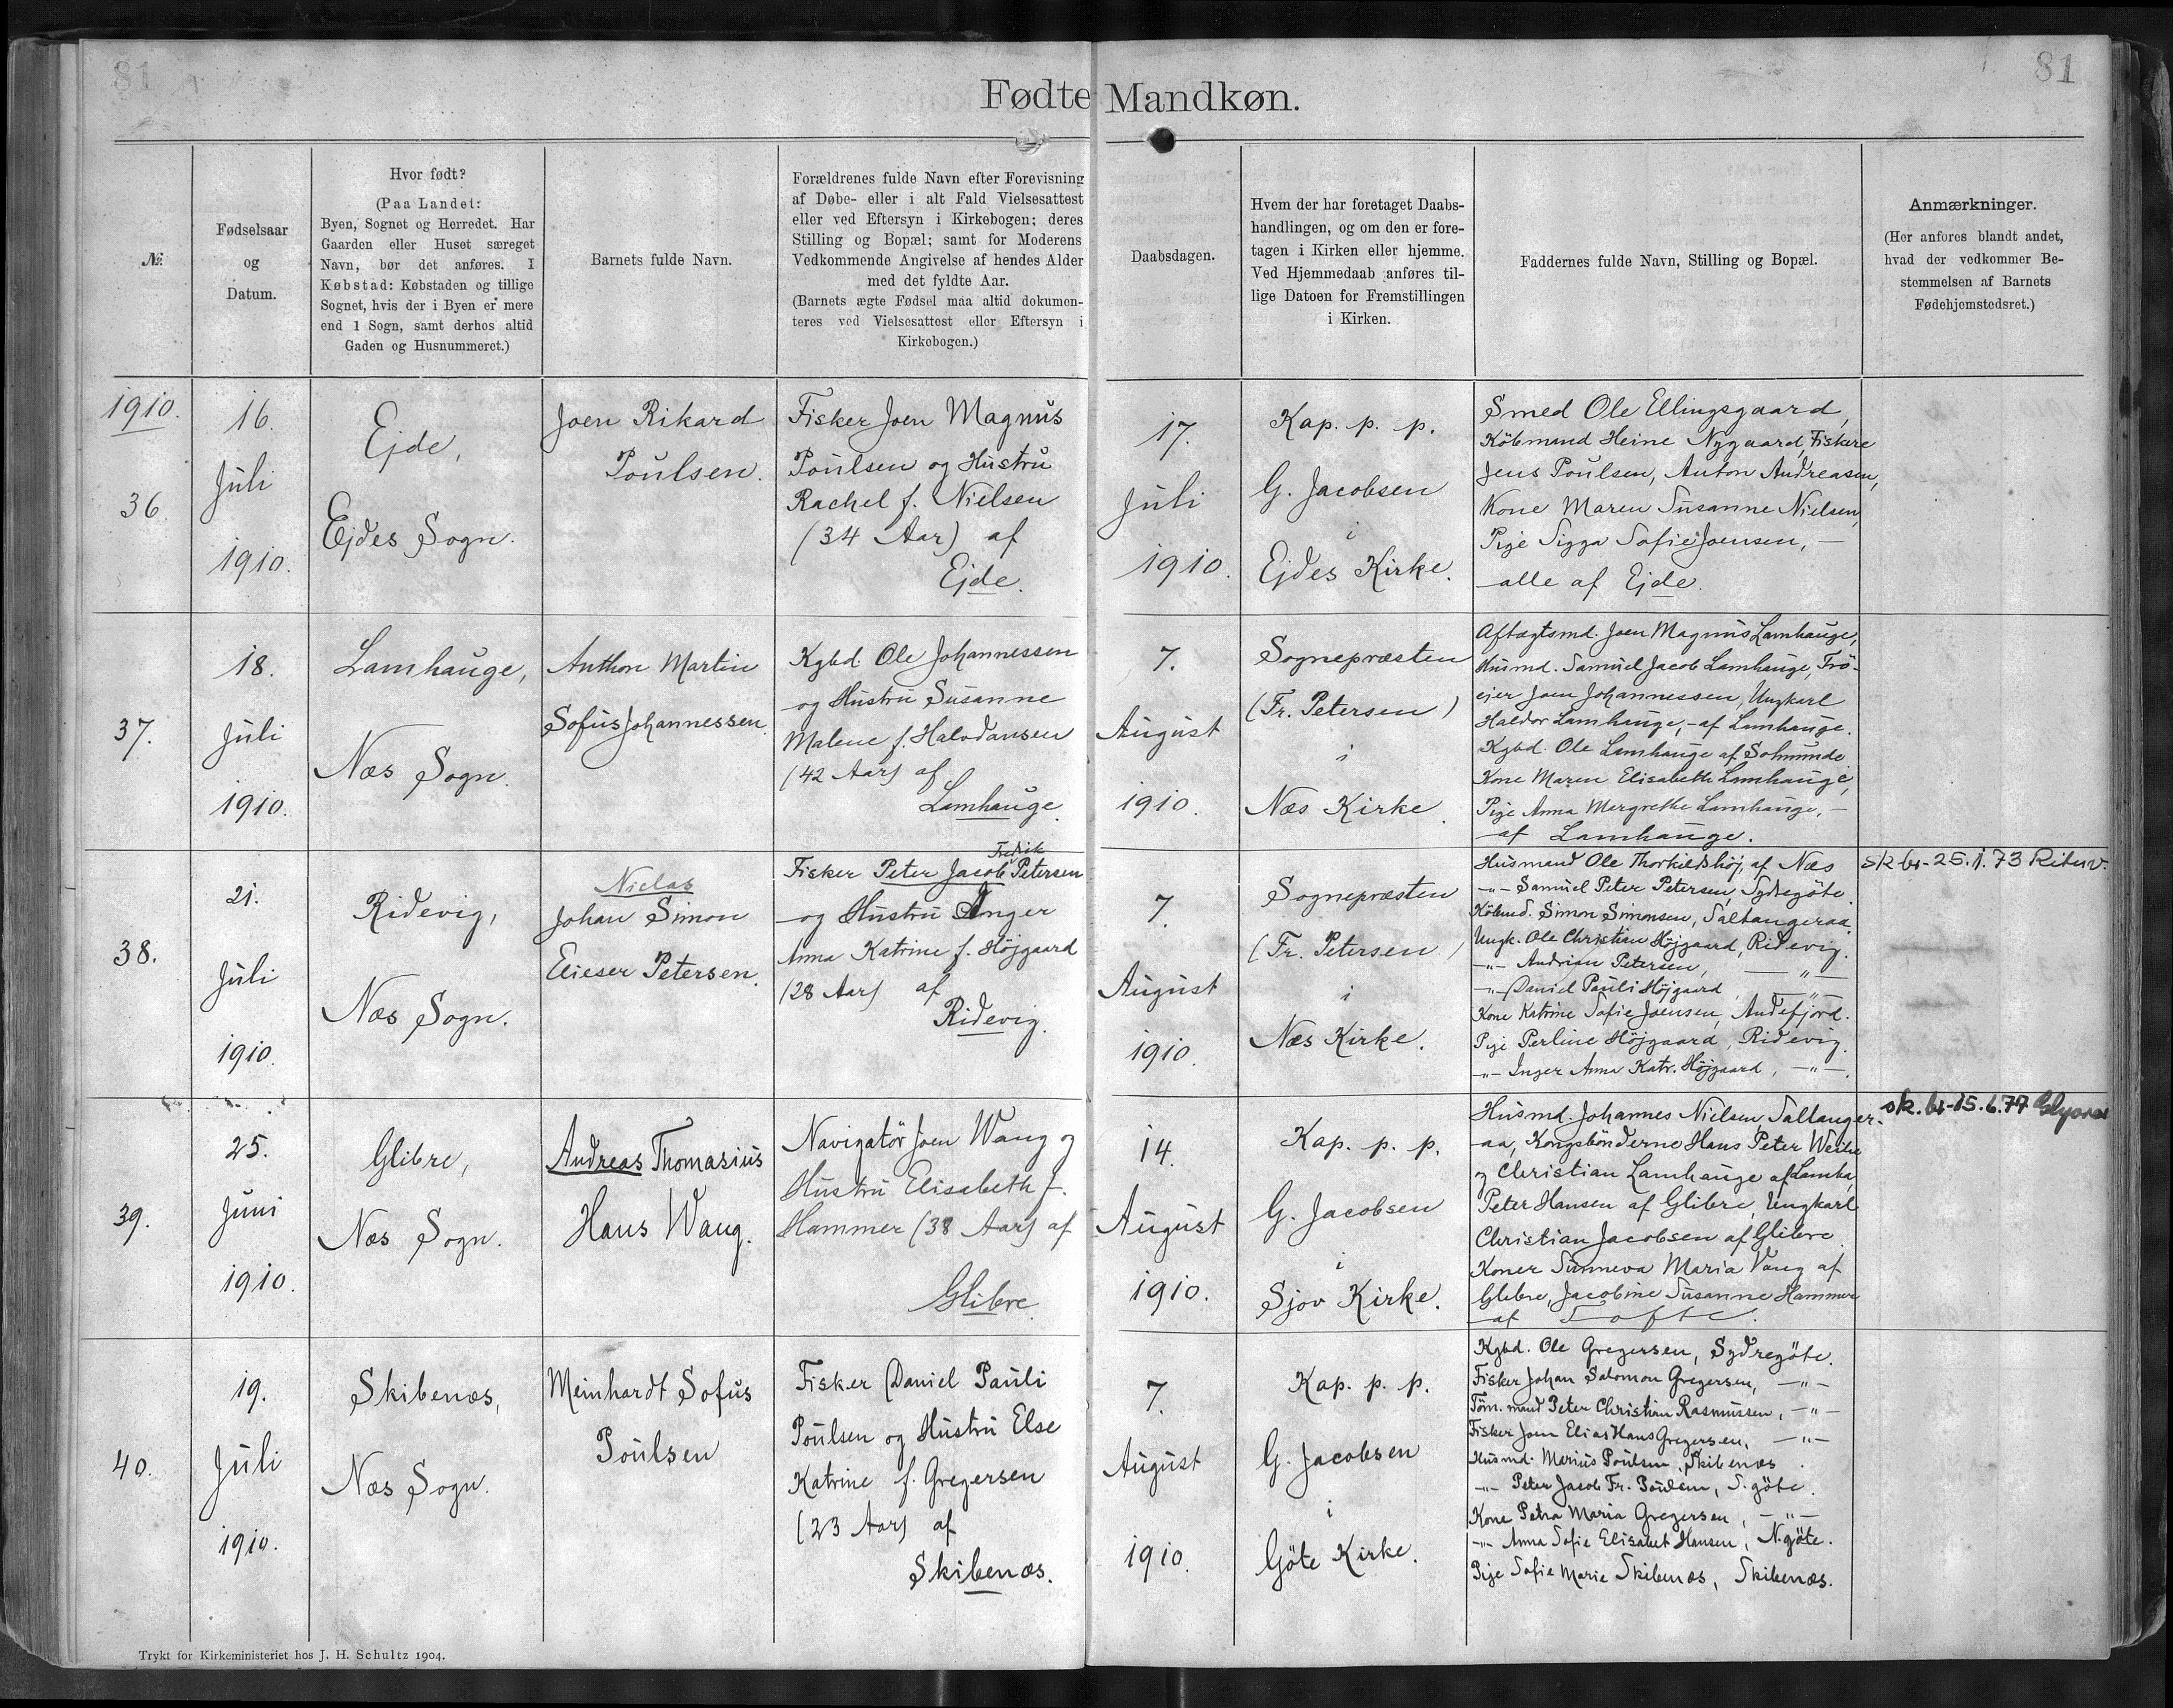 81
81
Fødte Mandkøn.
№
Fødselsaar
og
Datum.
Hvor født?
(Paa Landet:
Byen, Sognet og Herredet. Har
Gaarden eller Huset særeget
Navn, bør det anføres. I
Købstad: Købstaden og tillige
Sognet, hvis der i Byen er mere
end 1 Sogn, samt derhos altid
Gaden og Husnummeret.)
Barnets fulde Navn.
Forældrenes fulde Navn efter Forevisning
af Døbe- eller i alt Fald Vielsesattest
eller ved Eftersyn i Kirkebogen; deres
Stilling og Bopæl; samt for Moderens
Vedkommende Angivelse af hendes Alder
med det fyldte Aar.
(Barnets ægte Fødsel maa altid dokumen-
teres ved Vielsesattest eller Eftersyn i
Kirkebogen.)
Daabsdagen.
Hvem der har foretaget Daabs-
handlingen, og om den er fore-
tagen i Kirken eller hjemme.
Ved Hjemmedaab anføres til-
lige Datoen for Fremstillingen
i Kirken.
Faddernes fulde Navn, Stilling og Bopæl.
Anmærkninger.
(Her anføres blandt andet,
hvad der vedkommer Be-
stemmelsen af Barnets
Fødehjemstedsret.)
1910.
36
16.
Juli
1910.
Ejde,
Ejdes Sogn.
Joen Rikard
Poulsen.
Fisker Joen Magnus
Poulsen og Hustru
Rachel f. Nielsen
(34 Aar) af
Ejde.
17.
Juli
1910.
Kap. p. p.
G. Jacobsen
i
Ejdes Kirke.
Smed Ole Ellingsgaard,
Købmand Heine Nygaard, Fiskere
Jens Poulsen, Anton Andreasen,
Kone Maren Susanne Nielsen,
Pige Sigga Sofie Joensen, —
alle af Ejde.
37.
18.
Juli
1910.
Lamhauge,
Næs Sogn.
Anthon Martin
Sofus Johannessen.
Kgbd Ole Johannessen
og Hustru Susanne
Malene f. Halvdansen
(42 Aar) af
Lamhauge.
7.
August
1910.
Sognepræsten
(Fr. Petersen)
i
Næs Kirke.
Aftægtsmd. Joen Magnus Lamhauge,
Husmd. Samuel Jacob Lamhauge, Trö-
ejer Joen Johannessen, Ungkarl
Haldor Lamhauge, - af Lamhauge.
Kgbd. Ole Lamhauge af Solmunde
Kone Maren Elisabeth Lamhauge,
Pige Anna Margrethe Lamhauge, —
af Lamhauge.
38.
21.
Juli
1910.
Ridevig,
Næs Sogn.
Niclas
Johan Simon
Elieser Petersen.
Fredrik
Fisker Peter Jacob Petersen
og Hustru Inger
Anna Katrine f. Höjgaard
(28 Aar) af
Ridevig.
7.
August
1910.
Sognepræsten
(Fr. Petersen)
i
Næs Kirke.
Husmand Ole Thorkildshöj, af Næs
-"- Samuel Peter Petersen, Sydregöte.
Købmd. Simon Simonsen, Saltangeraa.
Ungk. Ole Christian Höjgaard, Ridevig.
-"- Andrian Petersen, —"—
-"- Daniel Pauli Höjgaard, —"—
Kone Katrine Sofie Joensen, Andefjord.
Pige Perline Höjgaard, Ridevig.
-"- Inger Anna Katr. Höjgaard, —"—.
sk. br. 25.1.73
39.
25.
Juni
1910.
Glibre,
Næs Sogn.
Andreas Thomasius
Hans Wang.
Navigatör Joen Wang og
Hustru Elisabeth f.
Hammer (38 Aar) af
Glibre
14.
August
1910.
Kap. p. p.
G. Jacobsen
i
Sjov Kirke.
Husmd. Johannes Nielsen, Saltanger-
aa, Kongsbönderne Hans Peter Weihe
og Christian Lamhauge af Lamha,
Peter Hansen af Glibre, Ungkarl
Christian Jacobsen af Glibre.
Koner Sunneva Maria Vang af
Glibre, Jacobine Susanne Hammer
af Tofte.
sk. br. 15.6.77
40.
19.
Juli
1910.
Skibenæs,
Næs Sogn.
Meinhardt Sofus
Poulsen
Fisker Daniel Pauli
Poulsen og Hustru Else
Katrine f. Gregersen
(23 Aar) af
Skibenæs.
7.
August
1910.
Kap. p. p.
G. Jacobsen
i
Göte Kirke.
Kgbd. Ole Gregersen, Sydregöte.
Fisker Johan Salomon Gregersen, —"—
Töm. mand Peter Christian Rasmussen, —"—
Fisker Joen Elias Hans Gregersen, —"—
Husmd. Marius Poulsen, Skibenæs.
-"- Peter Jacob Fr. Poulsen, S. göte.
Kone Petra Maria Gregersen, —"—
-"- Anna Sofie Elisabet Hansen, N. göte.
Pige Sofie Marie Skibenæs, Skibenæs.
Trykt for Kirkeministeriet hos J. H. Schultz 1904.